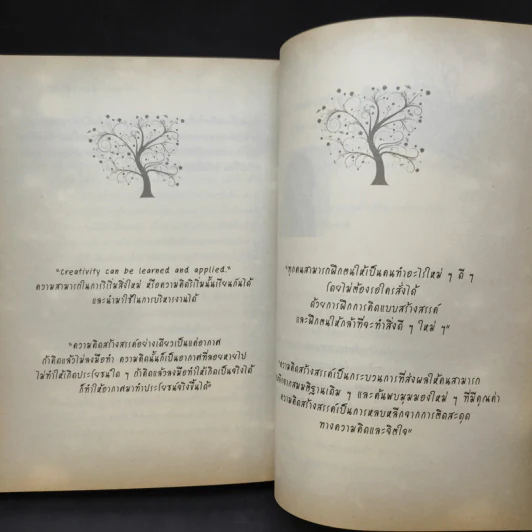 "Creativity can be learned and applied."
ความสามารถในการริเริ่มสิ่งใหม่ หรือความคิดริเริ่มนั้นเรียนกันได้
และนำมาใช้ในการบริหารงานได้
"ความคิดสร้างสรรค์อย่างเดียวเป็นแค่อากาศ
ถ้าคิดแล้วไม่ลงมือทำ ความคิดนั้นก็เป็นอากาศที่ลอยหายไป
ไม่ทำให้เกิดประโยชน์ใด ๆ ถ้าคิดแล้วลงมือทำให้เกิดเป็นจริงได้
ก็ทำให้อากาศมาทำประโยชน์จริงขึ้นได้"
"ทุกคนสามารถฝึกตนให้เป็นคนทำอะไรใหม่ ๆ ดี ๆ
โดยไม่ต้องรอใครสั่งได้
ด้วยการฝึกการคิดแบบสร้างสรรค์
และฝึกตนให้กล้าที่จะทำสิ่งดี ๆ ใหม่ ๆ"
"ความคิดสร้างสรรค์เป็นกระบวนการที่ส่งผลให้คนสามารถ
สมมติฐานเดิม ๆ และค้นพบมุมมองใหม่ ๆ ที่มีคุณค่า
ความคิดสร้างสรรค์เป็นการหลบหลีกจากการติดสะดุด
ทางความคิดและจิตใจ"